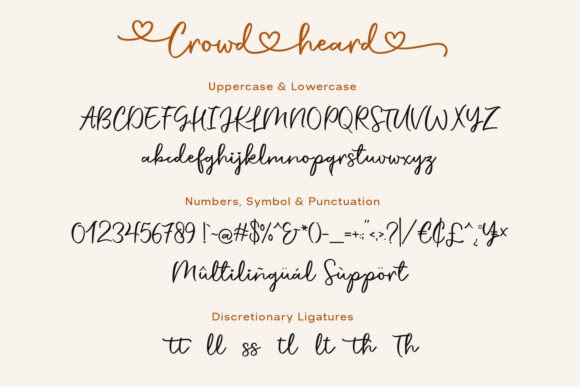 Crowd heard
Uppercase & Lowercase
ABCDEFGHIJKLMNOPQRSTUVWXYZ
abcdefghijklmnopqrstuvwxyz
Numbers, Symbol & Punctuation
0123456789 !`~@#$%^&*()-_=+:;"<,>.?|/€₵£^¿°¥×
Mûltilíñgüál Sùppört
Discretionary Ligatures
tt ll ss tl lt th Th